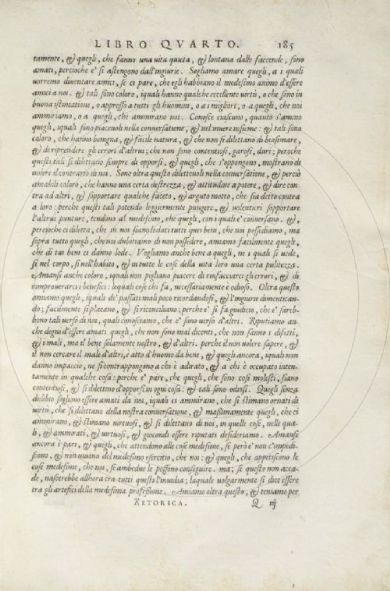 LIBRO QVARTO. 185
tamente, & quegli, che fanno una vita quieta, & lontana dalle faccende, sono
amati, percioche e' si astengono dall'ingiurie. Sogliamo amare quegli, a i quali
vorremo diventare amici, se ci pare, che egli habbiano il medesimo animo d'essere
amici a noi. & tali sono coloro, i quali hanno qualche eccellente virtù, o che sono in
buona stimatione, o appresso a tutti gli huomini, o a i migliori, o a quegli, che noi
ammiriamo, o a quegli, che ammirano noi.
quegli, i quali sono piacevoli nella conversatione, & nel vivere insieme: & tali sono
coloro, che hanno benigna, & facile natura, & che non si dilettano di biasimare,
& di riprendere gli errori d'altrui; che non sono contentiosi, garosi, duri; perche
questi tali si dilettano sempre di opporsi, & quegli, che s'oppongono, mostrano di
volere il contrario di noi. Sono oltra questo dilettevoli nella conversatione, & perciò
amabili coloro, che hanno una certa destrezza, & attitudine a patere, & dire con-
tra ad altri, & sopportare qualche faceto, & arguto motto, che sia detto contra
a loro: perche questi tali potendo leggiermente pungere, & volentieri sopportare
l'altrui punture, tendono al medesimo, che quegli, con i quali e' conversano. &,
percioche ci diletta, che in noi siano lodati tutti quei beni, che noi possediamo, ma
sopra tutto quegli, che noi dubitiamo di non possedere, amiamo facilmente quegli,
che di tai beni ci danno lode. Vogliamo anche bene a quegli, in i quali si vede,
& in tutte le cose della vita loro una certa pulitezza.
Amansi anche coloro, i quali non pigliano piacere di rinfacciarci gli errori, & di
rimproverarci i beneficii: lequali cose chi fa, necessariamente è odioso. Oltra questo
amiamo quegli, i quali de' passati mali poco ricordandosi, & l'ingiurie dimentican-
do; facilmente si placano, & si riconciliano: perche e' si fa giudicio, che e' fareb-
bono tali verso di noi, quali conosciamo, che e' sono verso d'altri. Reputiamo an-
che degni d'esser amati quegli, che non sono mal dicenti, che non sanno i difetti,
& i mali, ma i beni solamente nostri, & d'altri. perche il non volere sapere, &
il non cercare il male d'altri, è atto d'huomo da bene, & quegli ancora, i quali non
danno impaccio, ne si contrappongono a chi è adirato, & a chi è occupato inten-
tamente in qualche cosa: perche e' pare, che quegli, che sono così molesti, siano
contentiosi, & si dilettino d'opporsi in ogni cosa: & tali sono odiosi. Quegli senza
dubbio sogliono essere amati da noi, i quali ci ammirano, che ci stimano ornati di
virtù, che si dilettano della nostra conversatione, & massimamente quegli, che ci
ammirano, & stimano virtuosi, & si dilettano di noi, in quelle cose, nelle qua-
li, ammirati, & virtuosi, & giocondi essere riputati desideriamo. Amansi
ancora i pari, & quegli, che attendono alle cose medesime, se perciò non s'impedi-
scono, & niuno del medesimo esercitio, che noi: & quegli, che appetiscono le
cose medesime, che noi, se ambedue le possono conseguire. ma; se questo non acca-
de, nascerebbe allhora tra tutti questi l'invidia; laquale volgarmente si dice essere
tra gli artefici della medesima professione. Amiamo oltra questo, & teniamo per
RETORICA. Q iij